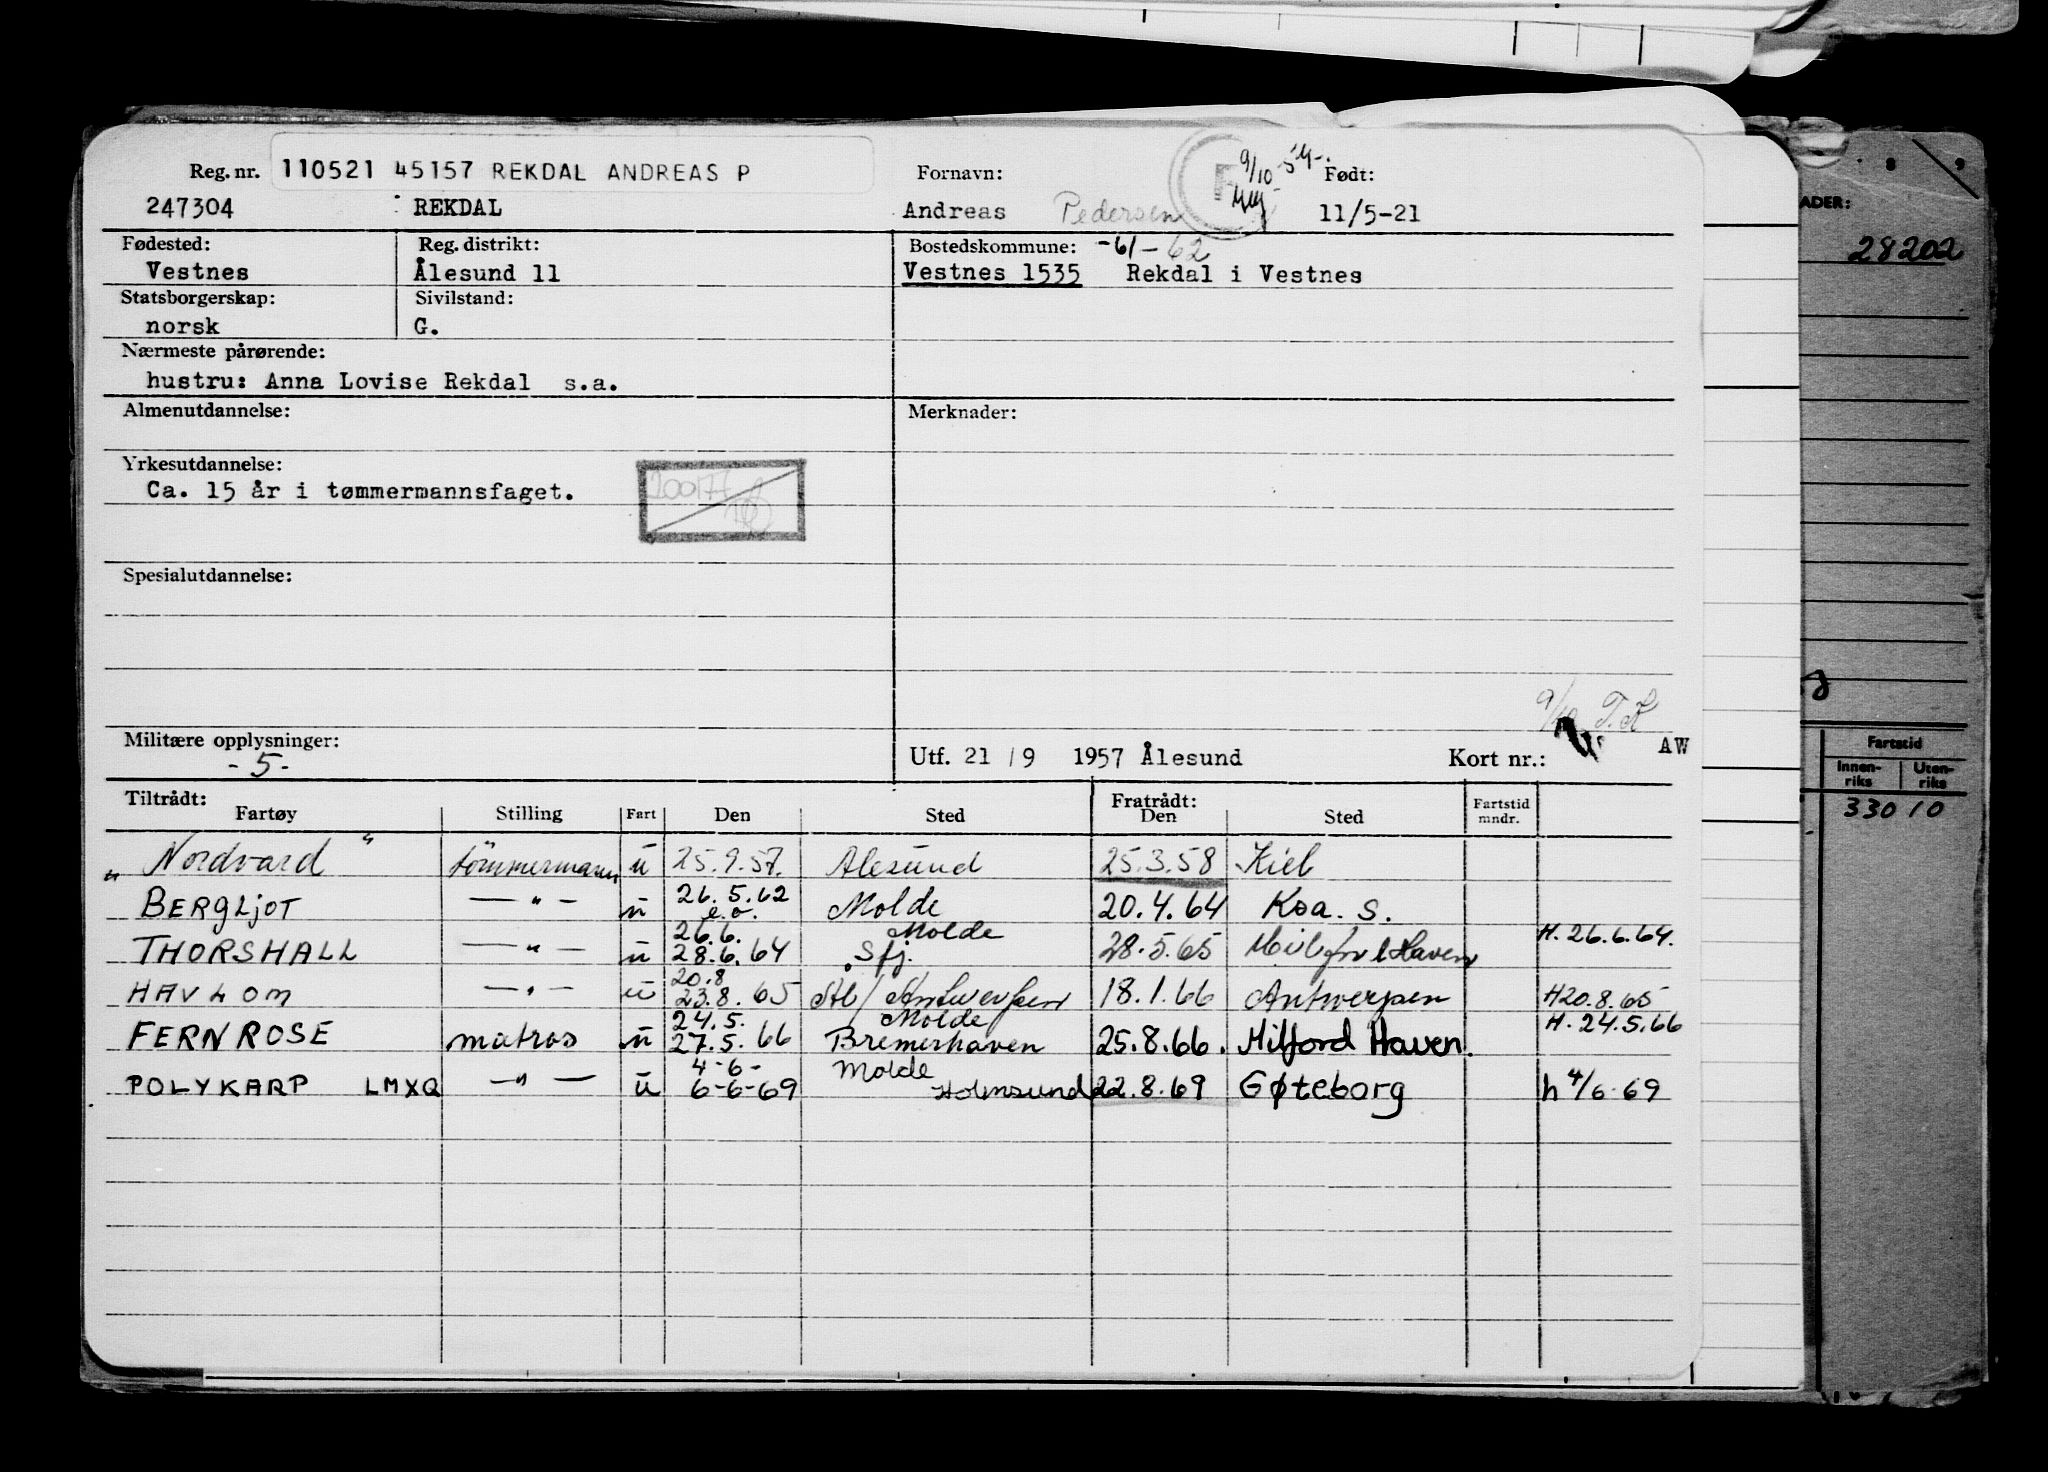 Reg. nr. 110521 45157 REKDAL ANDREAS P Fornavn: 9/10 -54- Født:
247304 REKDAL Andreas Pedersen 11/5-21
Fødested: Reg. distrikt: Bostedskommune: -61-62
Vestnes Ålesund 11 Vestnes 1535 Rekdal i Vestnes
Statsborgerskap: Sivilstand:
norsk G.
Nærmeste pårørende:
hustru: Anna Lovise Rekdal s.a.
Almenutdannelse: Merknader:
Yrkesutdannelse:
Ca. 15 år i tømmermannsfaget.
Spesialutdannelse:
9/10 T.K
Militære opplysninger: Utf. 21 / 9 1957 Ålesund Kort nr.: AW
-5-
Tiltrådt: Fratrådt: Fartstid
Fartøy Stilling Fart Den Sted Den Sted mndr.
„ Nordvard " tömmermann u 25.9.57. Alesund 25.3.58 Kiel
BERGLJOT — " — u 26.5.62 e.o. Molde 20.4.64 Koa. S.
26.6. Molde H. 26.6.64.
THORSHALL — " — u 28.6.64 Sfj. 28.5.65 Milford Haven
20.8
HAVLOM — " — u 23.8.65 Al/ Antwerpen 18.1.66 Antwerpen H20.8.65
24.5. Molde H. 24.5.66
FERNROSE matros u 27.5.66 Bremerhaven 25.8.66. Milford Haven.
4-6- Molde
POLYKARP LMXQ — " — u 6-6-69 Holmsund 22.8.69 Gøteborg h 4/6-69
ADER:
28202
Fartstid
Innen-riks Uten-riks
330 10